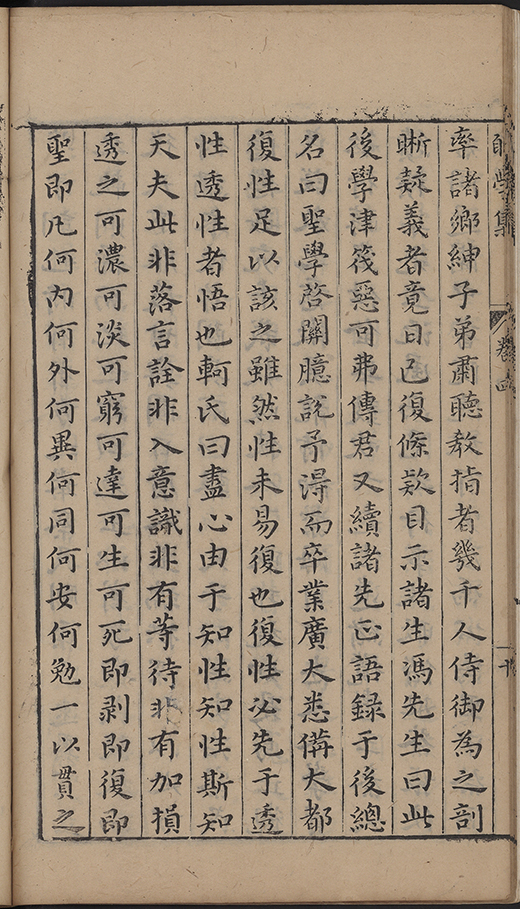 學集
卷四
率諸鄉紳子弟肅聽教指者幾千人侍御為之剖
晰疑義者竟日已復條欵目示諸生馮先生曰此
後學津筏惡可弗傳君又續諸先正語録于後總
名曰聖學啓關臆說予淂而卒業廣大悉備大都
復性足以該之雖然性未易復也復性必先于透
性透性者悟也軻氏曰盡心由于知性知性斯知
天夫此非落言詮非入意識非有等待非有加損
透之可濃可淡可窮可達可生可死即剥即復即
聖即凡何内何外何異何同何安何勉一以貫之